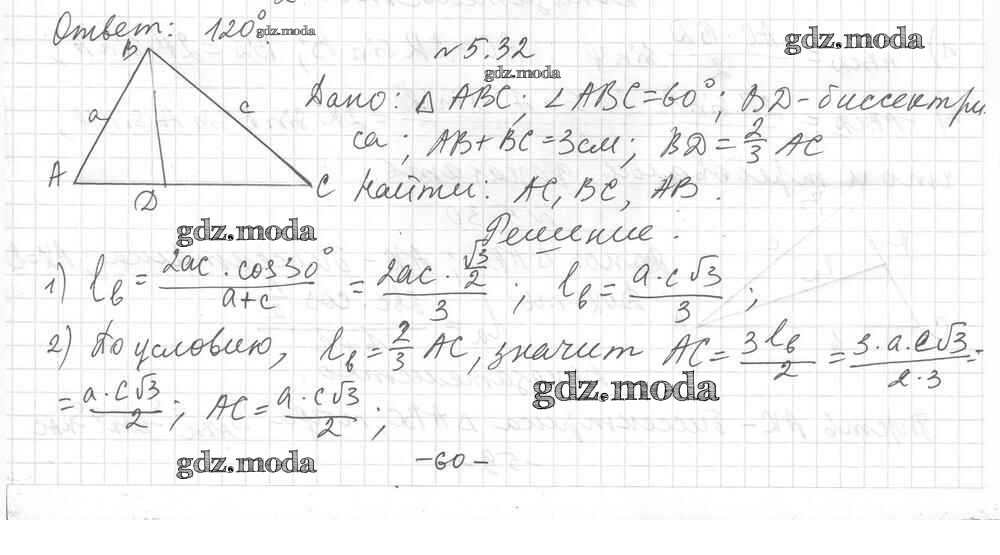 Ответ: 120°.
gdz.moda
№5.32
gdz.moda
gdz.moda
B
a
c
A
D
C
Дано: △ABC; ∠ABC=60°; BD-биссектри
са; AB+BC=3см; BD=2/3 AC
Найти: AC, BC, AB.
gdz.moda
Решение:
1) l_в = 2ac·cos30°/a+c = 2ac·√3/2 / 3 ; l_в = a·c√3/3 ;
2) По условию, l_в = 2/3 AC, значит AC = 3l_в/2 = 3·a·c√3/2·3 =
gdz.moda
= a·c√3/2 ; AC = a·c√3/2 ;
gdz.moda
-60-